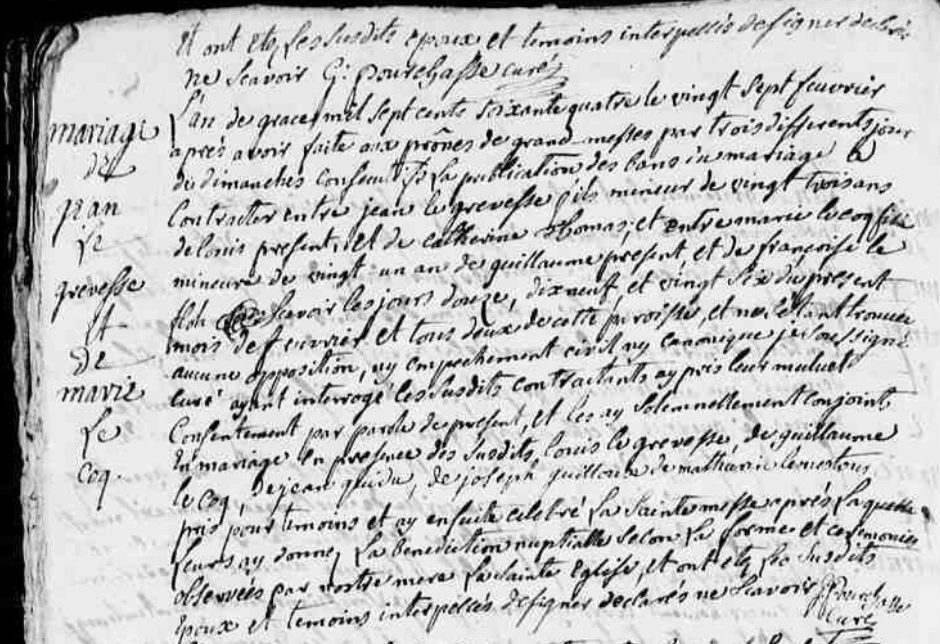 Et ont etez les susdits epoux et temoins interpellés de signer declarés
ne scavoir G: pourchasse curé
mariage
de
jean
le
grevesse
et
de
marie
le
coq.
L'an de grace mil sept cents soixante quatre le vingt sept feuvrier
aprés avoir faite aux prônes de grand messes par trois differents jour
du dimanches consecutifs la publication des bans du mariage a
Contracter entre jean le grevesse fils mineur de vingt trois ans
de louis present, et de catherine thomas, et entre marie le coq fille
mineure de vingt un ans de guillaume present et de françoise le
floh scavoir les jours douze, dixneuf, et vingt six du present
mois de feuvrier et tous deux de cette paroisse, et ne s'etant trouvée
aucune opposition, ny empechement civil ny canonique je soussigné
curé ayant interrogé les susdits contractants ay pris leur mutuel
Consentement par parole de present, et les ay solemnellement conjoint
En mariage en presence des susdits, louis le grevesse, de guillaume
le coq, de jean guidu, de joseph guilloux de mathurin
pris pour temoins et ay ensuite celebré la sainte messe aprés laquelle
leurs ay donnez la benediction nuptialle selon la forme et ceremonies
observées par nostre mere la sainte Eglise, et ont etez les susdits
Epoux et temoins interpellés de signer declarés ne scavoir G: Pourchasse
Curé